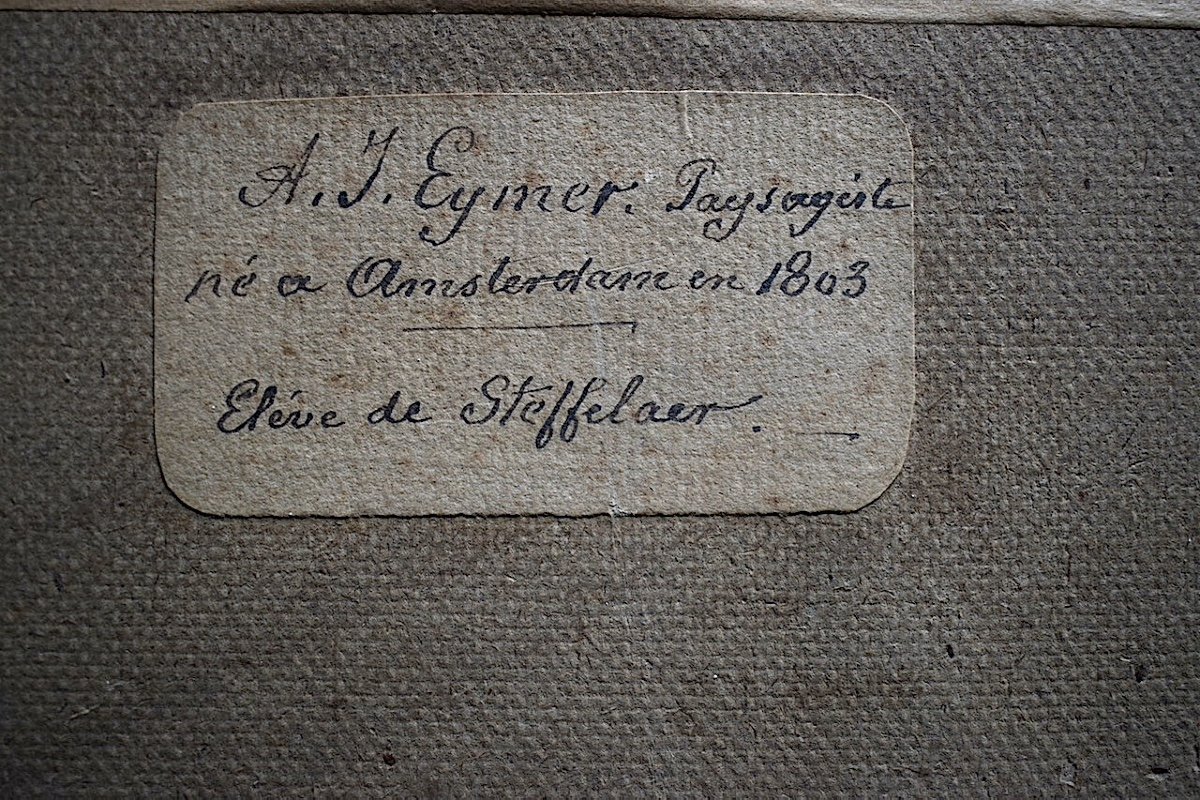 A. J. Eymer. Paysagiste
né a Amsterdam en 1803
Eléve de Steffelaer.